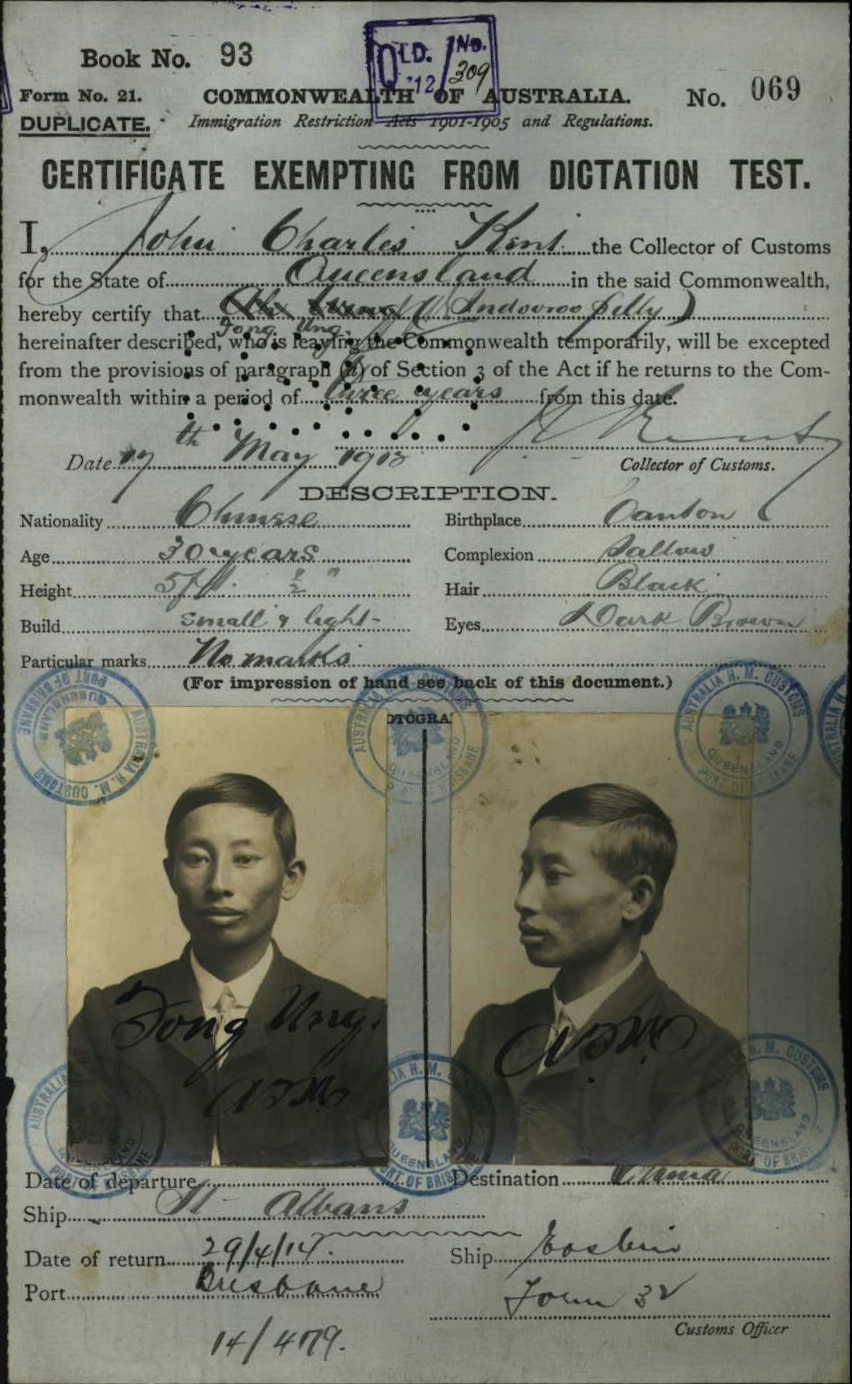 Book No. 93
OLD. No.
'12/309
Form No. 21. COMMONWEALTH OF AUSTRALIA. No. 069
DUPLICATE. Immigration Restriction Acts 1901-1905 and Regulations.
CERTIFICATE EXEMPTING FROM DICTATION TEST.
I, John Charles Kent the Collector of Customs
for the State of Queensland in the said Commonwealth,
hereby certify that (Indooroopilly)
Fong Ung
hereinafter described, who is leaving the Commonwealth temporarily, will be excepted
from the provisions of paragraph (a) of Section 3 of the Act if he returns to the Com-
monwealth within a period of three years from this date.
Date 17th May 1912
Collector of Customs.
DESCRIPTION.
Nationality Chinese Birthplace Canton
Age 30 years Complexion Sallow
Height 5ft 2" Hair Black
Build Small & light Eyes Dark Brown
Particular marks No marks
(For impression of hand see back of this document.)
AUSTRALIA H. M. CUSTOMS QUEENSLAND PORT OF BRISBANE
OTOGRA
Fong Ung.
Date of departure Destination China
Ship St Albans
Date of return 29/4/14. Ship Eastern
Port Brisbane
Form 32
Customs Officer
14/4079.